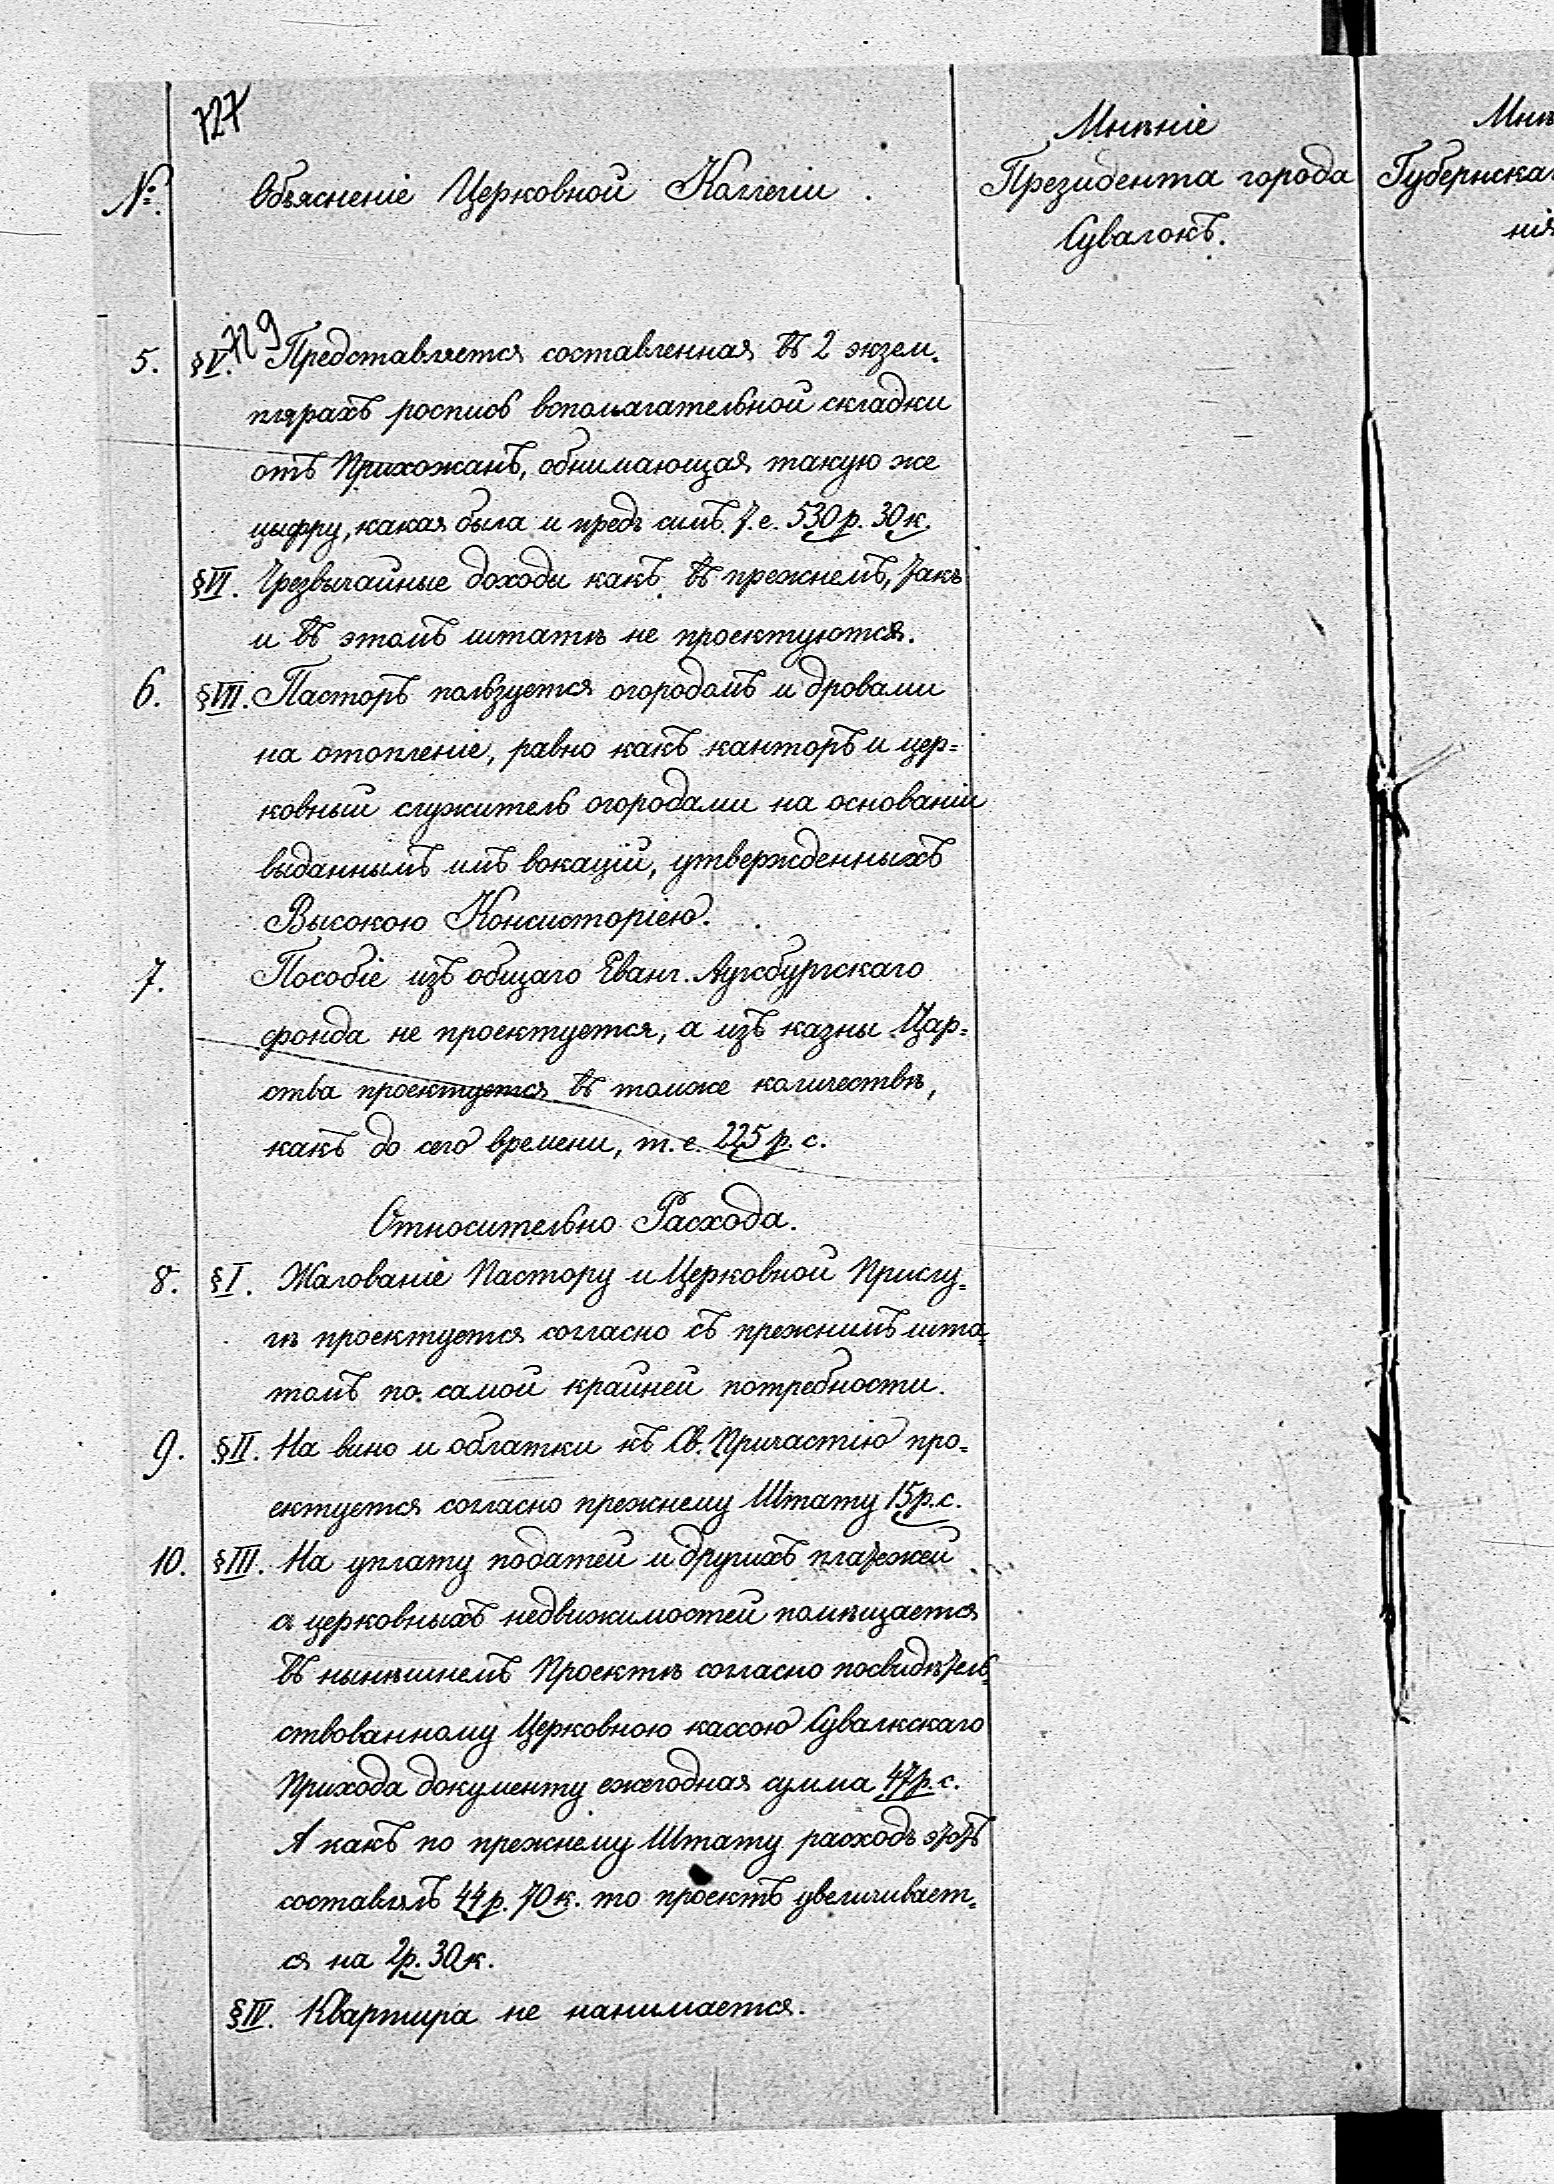 727
№
Объясненіе Церковной Коллегіи.
Мнѣніе
Президента города
Сувалокъ.
Мнѣ
Губернска
нія
729
5. §V. Представляется составленная въ 2 экзем-
плярахъ роспись вспомагательной складки
отъ Прихожанъ, обнимающая такую же
цыфру, какая была и предъ симъ т.е. 530 р. 30 к.
§VI. Чрезвычайные доходы какъ въ прежнемъ, такъ
и въ этомъ штатѣ не проектуются.
6. §VII. Пасторъ пользуется огородомъ и дровами
на отопленіе, равно какъ канторъ и цер=
ковный служитель огородами на основаніи
выданнымъ имъ вокацій, утвержденныхъ
Высокою Консисторіею.
7. Пособіе изъ общаго Еванг. Аугсбургскаго
фонда не проектуется, а изъ казны Цар=
ства проектуется въ томже количествѣ,
какъ до сего времени, т.е. 225 р. с.
Относительно Расхода.
8. §I. Жалованіе Пастору и Церковной Прислу=
гѣ проектуется согласно съ прежнимъ шта-
томъ по самой крайней потребности.
9. §II. На вино и облатки къ Св. Причастію про=
ектуется согласно прежнему Штату 15 р. с.
10. §III. На уплату податей и другихъ платежей
съ церковныхъ недвижимостей помѣщается
въ нынѣшнемъ Проектѣ согласно посвидѣтель-
ствованному Церковною кассою Сувалкскаго
Прихода документу ежегодная сумма 47 р. с.
А какъ по прежнему Штату расходъ этотъ
составлялъ 44 р. 70 к. то проектъ увеличивает-
ся на 2 р. 30 к.
§IV. Квартира не нанимается.